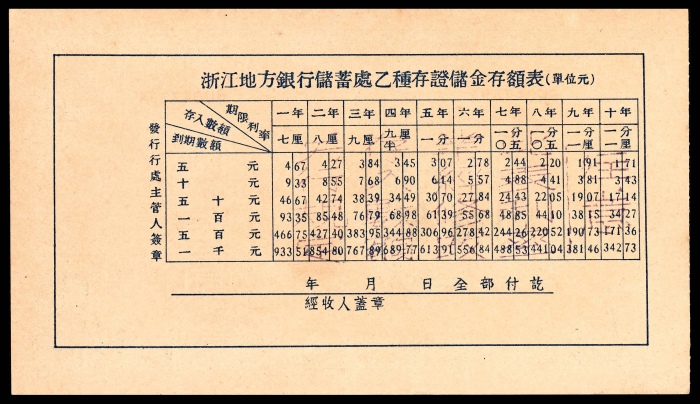 浙江地方銀行儲蓄處乙種存證儲金存額表(單位元)
期限利率 存入數額 到期數額 一年 二年 三年 四年 五年 六年 七年 八年 九年 十年
七厘 八厘 九厘 九厘半 一分 一分 一分〇五 一分〇五 一分一厘 一分一厘
五元 4 67 4 27 3 84 3 45 3 07 2 78 2 44 2 20 1 91 1 71
十元 9 33 8 55 7 68 6 90 6 14 5 57 4 88 4 41 3 81 3 43
五十元 46 67 42 74 38 39 34 49 30 70 27 84 24 43 22 05 19 07 17 14
一百元 93 35 85 48 76 79 68 98 61 39 55 68 48 85 44 10 38 15 34 27
五百元 466 75 427 40 383 95 344 88 306 96 278 42 244 26 220 52 190 73 171 36
一千元 933 51 854 80 767 89 689 77 613 91 556 84 488 53 441 04 381 46 342 73
發行行處主管人簽章
年 月 日全部付訖
經收人蓋章